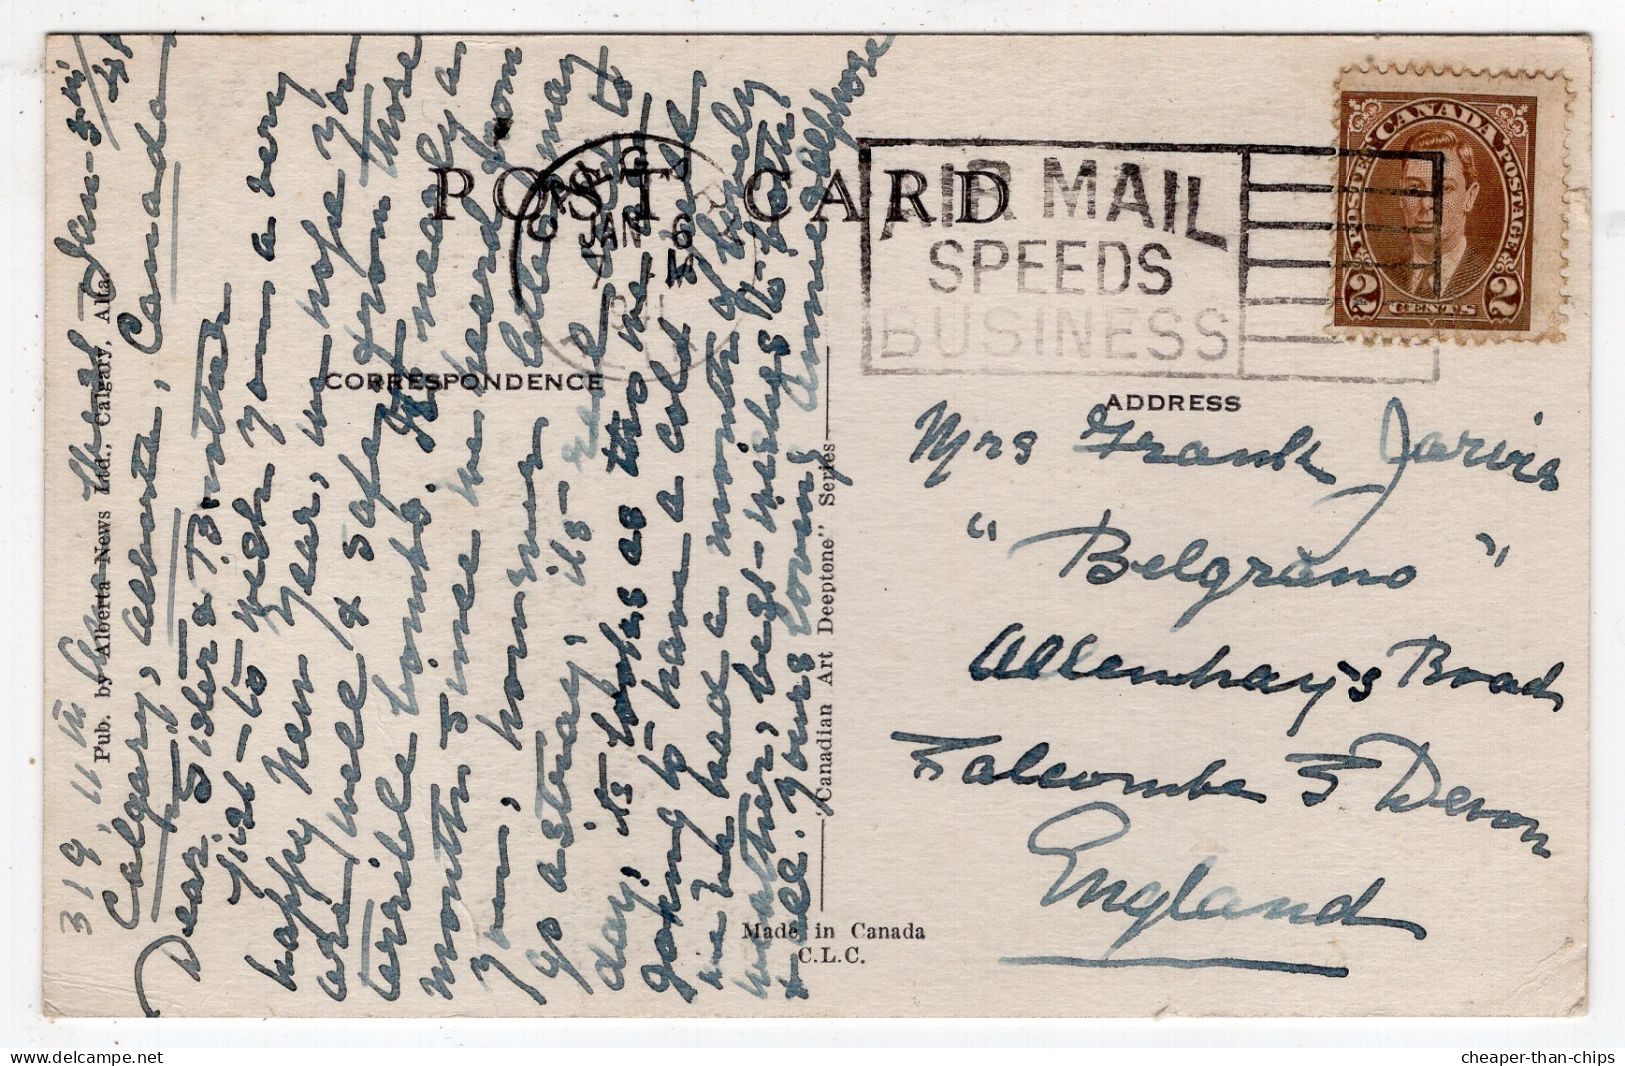 319, 11th Avenue West Jan-3rd/41
Calgary, Alberta, Canada
Dear Sister & Brother
Just to wish you a very
happy New Year, we hope you
are well & safe from those
terrible bombs. It's nearly a
month since we heard from
you, however letters may
go astray, its real
day, it looks as tho we
going to have a cold
we've had a month of lovely
weather, best wishes to both
& all. Yours loving Annie & Alphose
POST CARD
CORRESPONDENCE
ADDRESS
CALGARY
JAN 6
1941
AIR MAIL
SPEEDS
BUSINESS
CANADA
POSTES POSTAGE
2 CENTS 2
Mrs Frank Jarvis
"Belgrano"
Allenhay's Road
Salcombe S Devon
England
Pub. by Alberta News Ltd., Calgary, Alta.
"Canadian Art Deeptone" Series
Made in Canada
C.L.C.
cheaper-than-chips